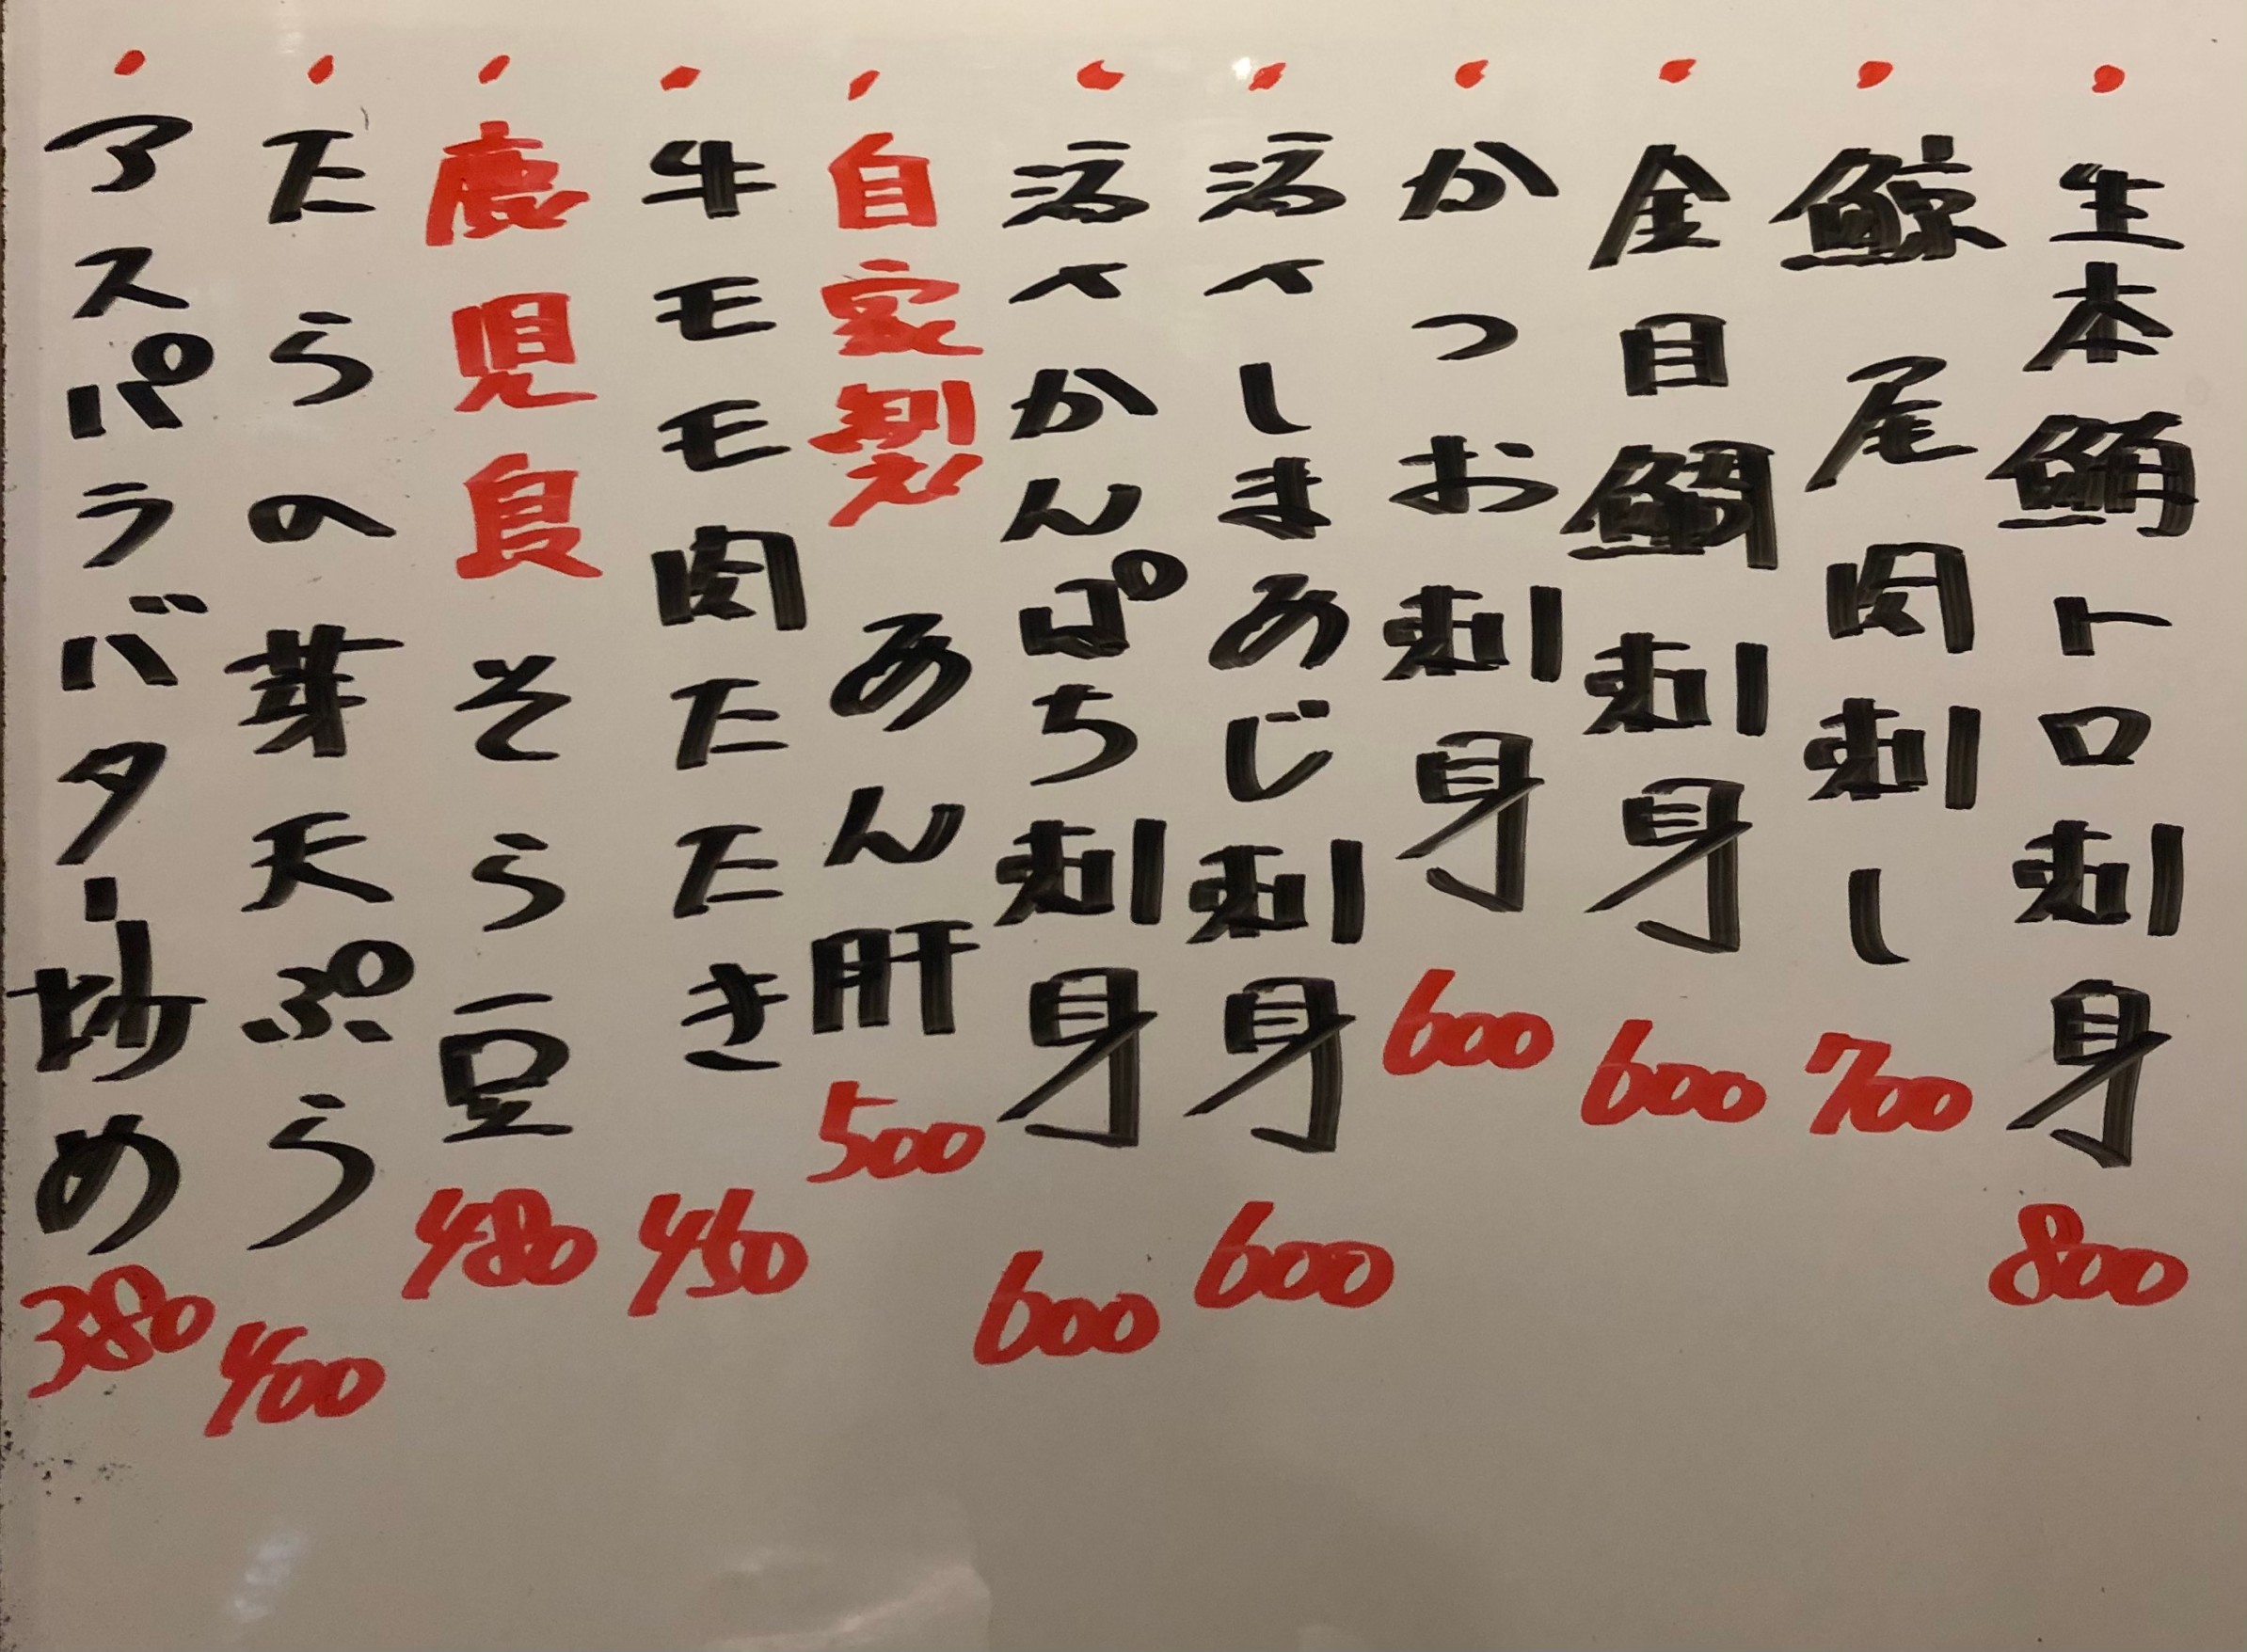 ・生本鮪トロ刺身 800
・鯨尾肉刺し 700
・金目鯛刺身 600
・かつお刺身 600
・活〆しまあじ刺身 600
・活〆かんぱち刺身 600
・自家製あん肝 500
・牛モモ肉たたき 450
・鹿児島そら豆 480
・たらの芽天ぷら 400
・アスパラバター炒め 380